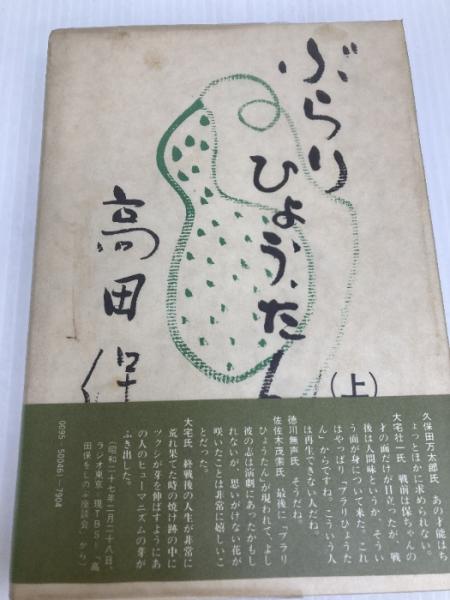 ぶらり
ひょうたん
高田保
（上）
久保田万太郎氏　あの才能はち
ょっとほかに求められない。
大宅壮一氏　戦前は保ちゃんの
才の面だけが目立ったが、戦
後は人間味というか、そうい
う面が身について来た。これ
はやっぱり「ブラリひょうた
ん」からですね。こういう人
は再生できない人だね。
徳川無声氏　そうだね。
佐佐木茂索氏　最後に「ブラリ
ひょうたん」が現われて、よし
彼の志は演劇にあったかもし
れないが、思いがけない花が
咲いたことは非常に嬉しいこ
とだった。
大宅氏　終戦後の人生が非常に
荒れ果てた時の焼け跡の中に
ツクシが芽を伸ばすようにあ
の人のヒューマニズムの芽が
ふき出した。
（昭和二十七年二月二十八日、
ラジオ東京＝現TBS＝、「高
田保をしのぶ座談会」から）
0095-500461-7904